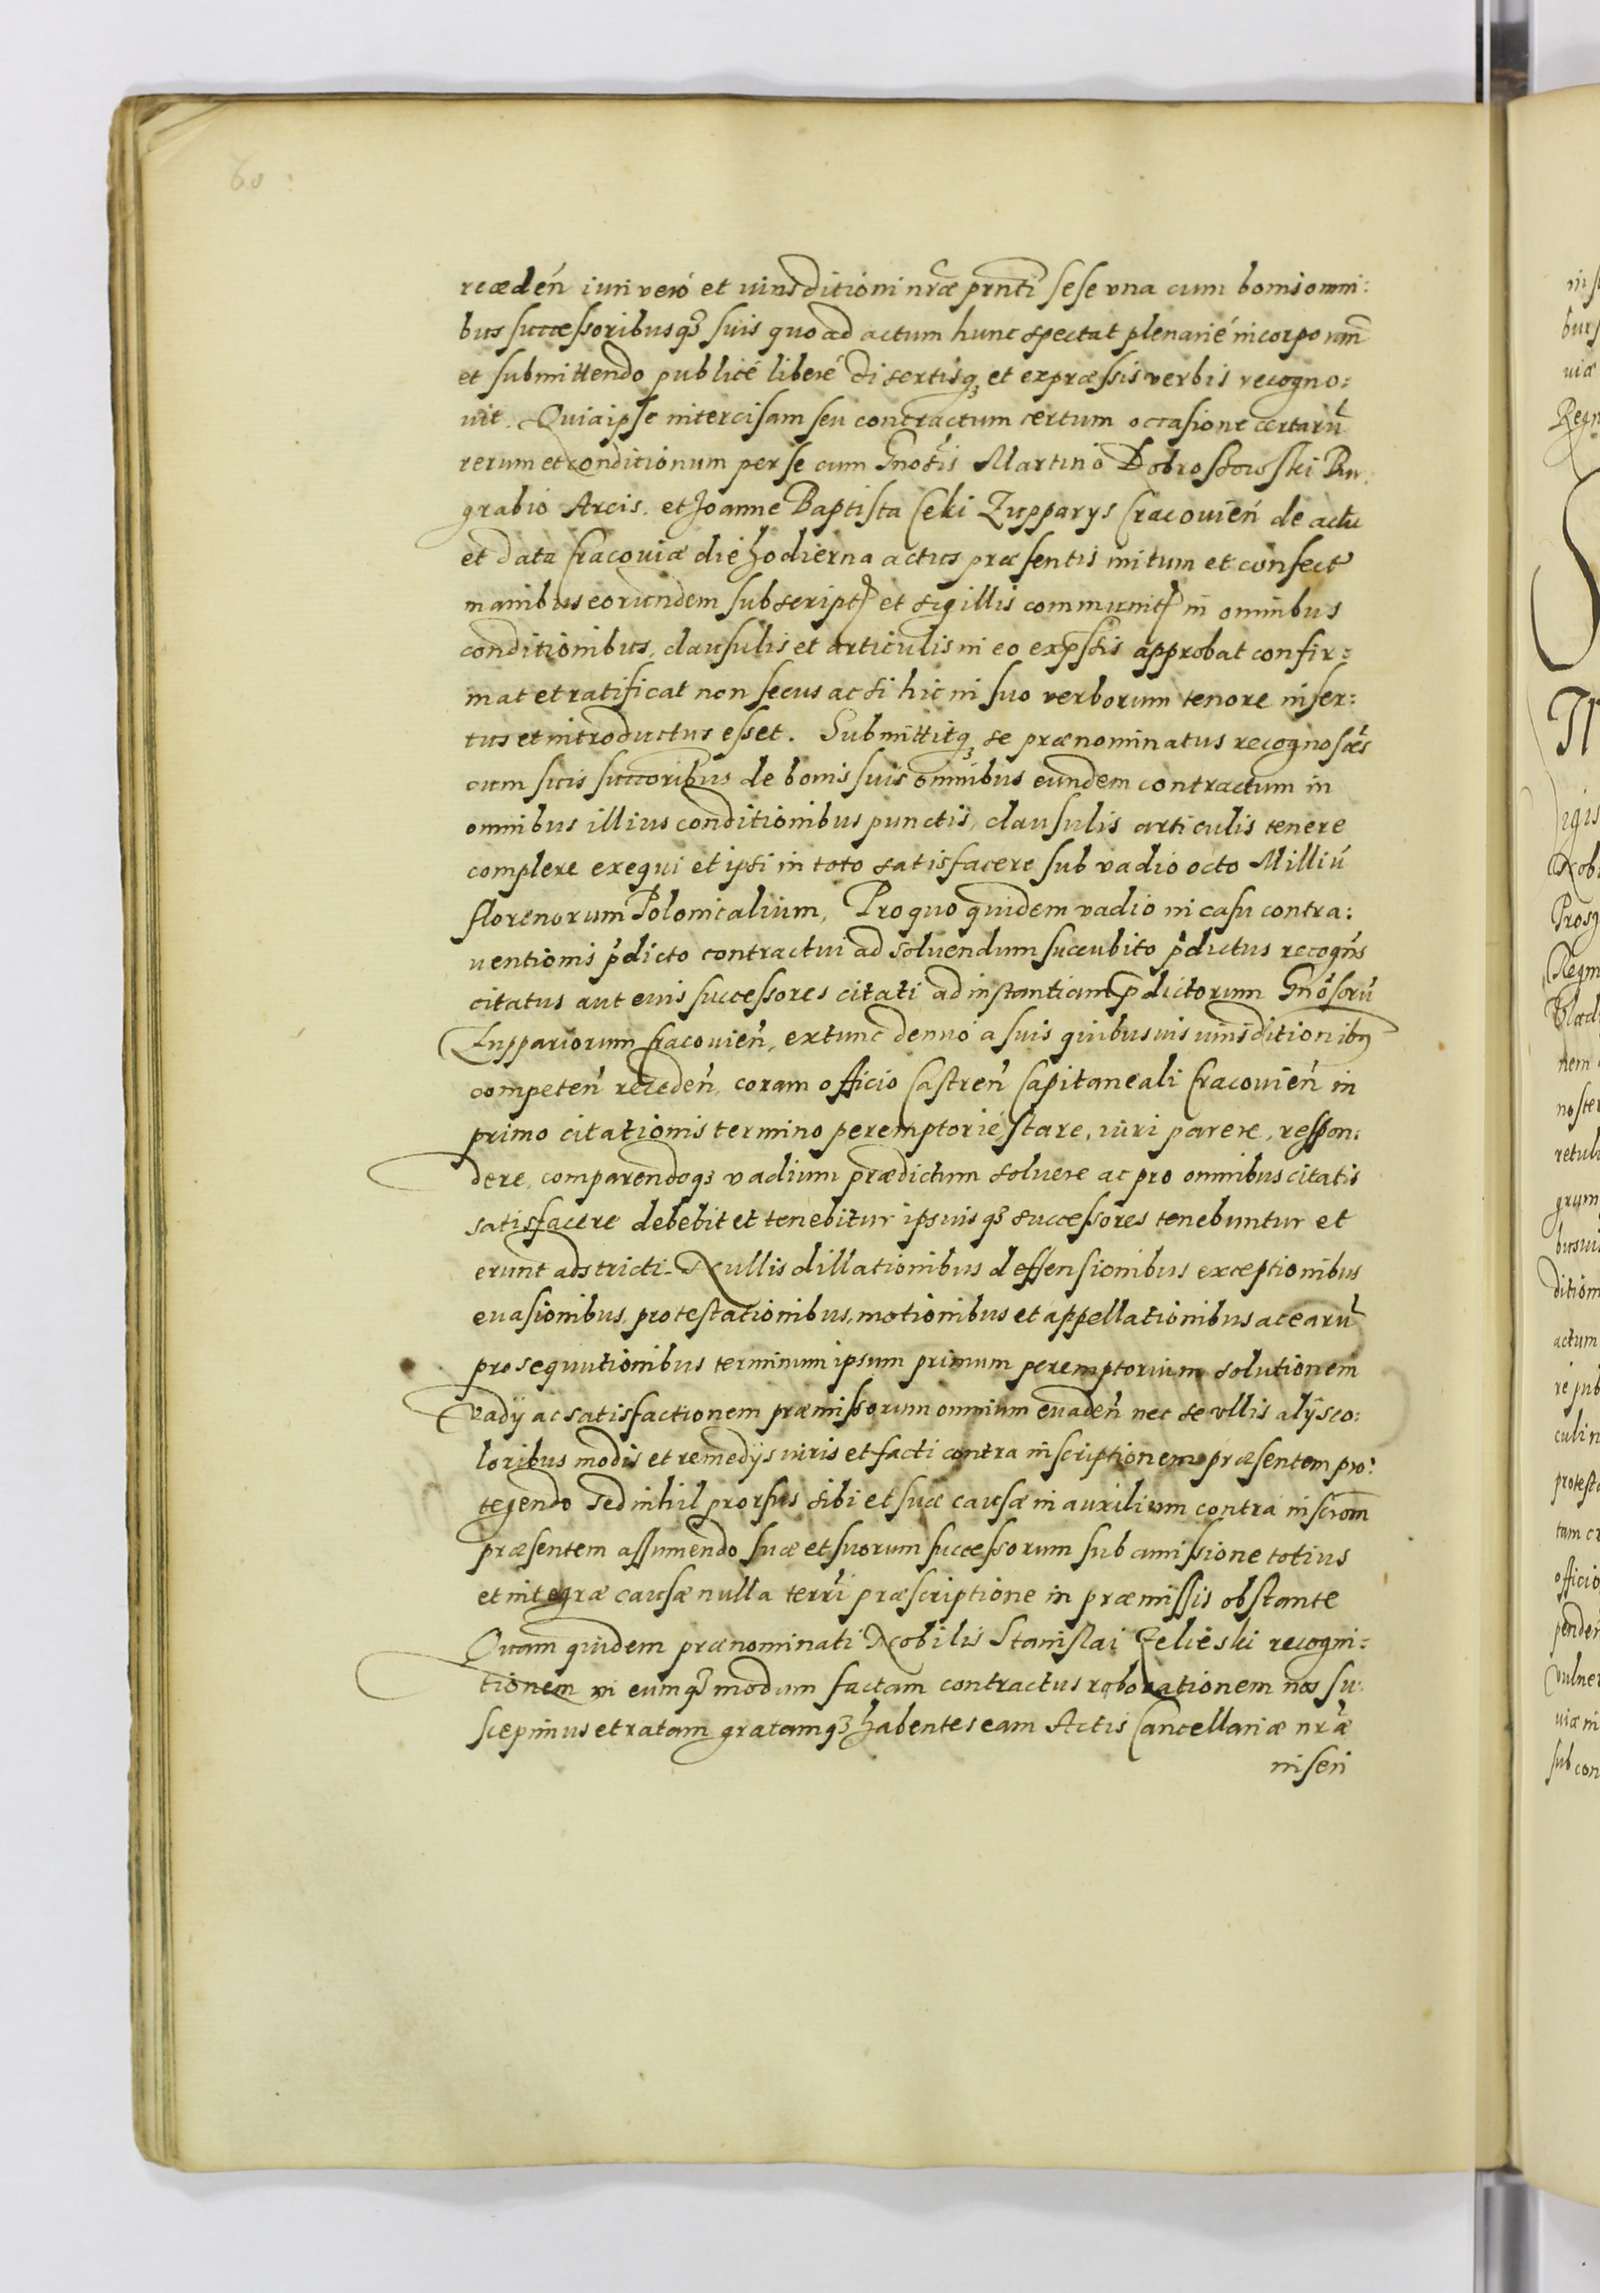 60
recæden̄ iuri vero et iurisditioni nr̄æ prn̄ti sese vna cum bonis omni:
bus successoribusq3 suis quo ad actum hunc spectat plenarie incorporan̄
et submittendo publicè liberè disertisq3 et expræssis verbis recogno:
uit. Quia ipse intercisam seu contractum certum occasione certarū
rerum et conditionum per se cum Gnosis Martino Dobrostowski Bur
grabio Arcis. et Joanne Baptista Ceki Zupparys Cracouień de actu
et data Cracouiæ die hodierna actus præsentis initum et confect
manibus eorundem subscript et sigillis communit in omnibus
conditionibus, clausulis et articulis in eo exp̄ssis approbat confir:
mat et ratificat non secus ac si hic in suo verborum tenore inser:
tus et introductus esset. Submittitq3 se prænominatus recognoscēs
cum suis succoribus de bonis suis omnibus eundem contractum in
omnibus illius conditionibus punctis, clausulis articulis tenere
complere exequi et ipsi in toto satisfacere sub vadio octo Milliū
florenorum Polonicalium, Pro quo quidem vadio in casu contra:
uentionis p̄dicto contractui ad soluendum succubito p̄dictus recogn̄s
citatus aut euis successores citati ad instantiam p̄dictorum Gnōsorū
Zuppariorum Cracouień, extunc denuo a suis quibusuis iurisditionibꝰ
competeń receden̄, coram officio Castreń Capitaneali Cracouień in
primo citationis termino peremptorie, stare, iuri parere, respon:
dere, comparendoq3 vadium prædictum soluere ac pro omnibus citatis
satisfacere debebit et tenebitur ipsuisq3 successores tenebuntur et
erunt adstricti. Nullis dillationibus deffensionibus exceptionibus
euasionibus, protestationibus, motionibus et appellationibus ac earū
prosequutionibus terminum ipsum primum peremptorium solutionem
vadÿ ac satisfactionem præmissorum omnium euaden̄ nec se vllis alÿs co:
loribus modis et remedÿs iuris et facti contra inscriptionem præsentem pro:
tegendo sed nihil prorsus sibi et suæ causæ in auxilium contra inscrōm
præsentem assumendo suæ et suorum successorum sub amissione totius
et integræ causæ nulla terrī præscriptione in præmissis obstante
Quam quidem prænominati Nobilis Stanislai Zelieski recogni:
tionem in eumq3 modum factam contractus roborationem nos su:
scepimus et ratam gratamq3 habentes eam Actis Cancellariæ nr̄æ
inseri